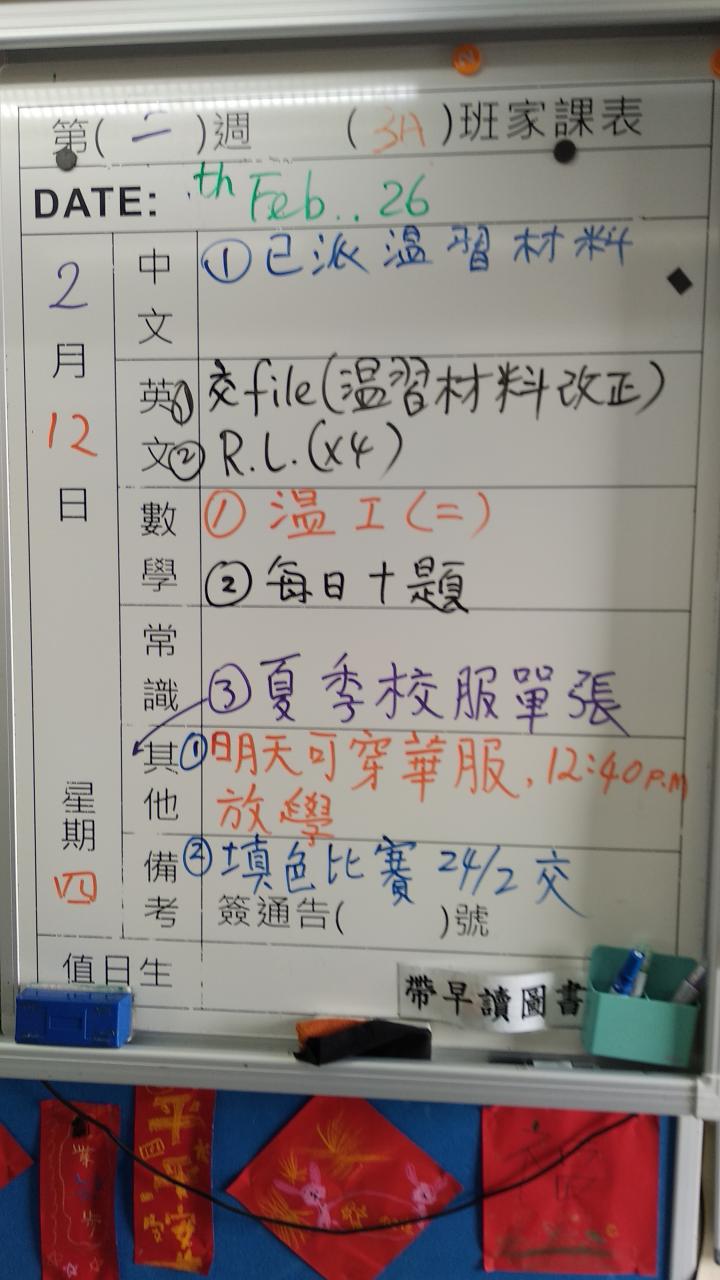 第(二)週 (3A)班家課表
DATE: th Feb.. 26
2月12日
星期四
中文 ①已派溫習材料
英文 ①交file(溫習材料改正)
②R.L.(x4)
數學 ①溫工(二)
②每日十題
常識
③夏季校服單張
其他 ①明天可穿華服,12:40P.M
放學
備考 ②填色比賽 24/2交
簽通告( )號
值日生
帶早讀圖書
平
安